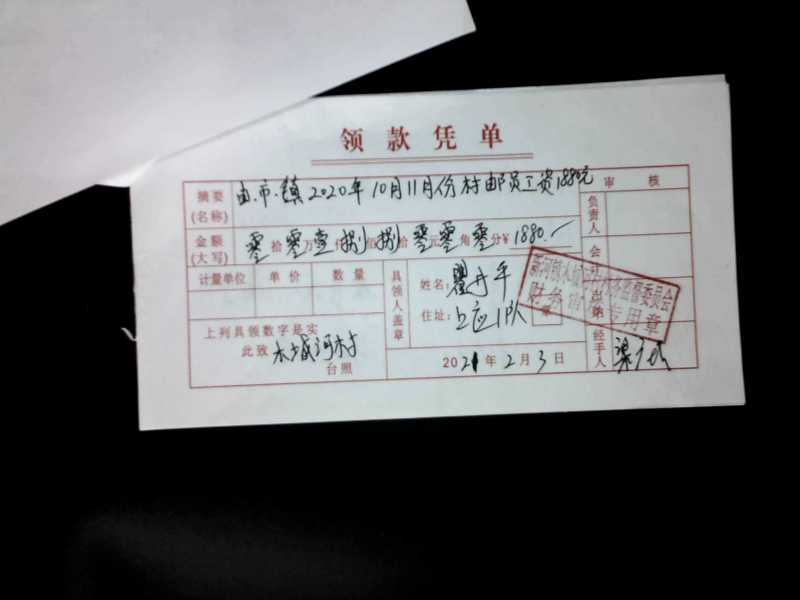 领款凭单
摘要(名称) 由.市.镇2020年10月11月份村邮员工资1880元
审核
金额(大写) 零拾零万壹仟捌佰捌拾零元零角零分¥1880.-
负责人
计量单位 单价 数量
具领人盖章
姓名: 翟丹平
住址: 上应1队
上列具领数字是实
此致 木城河村
台照
2021年2月3日
经手人
监督委员会
财务 专用章